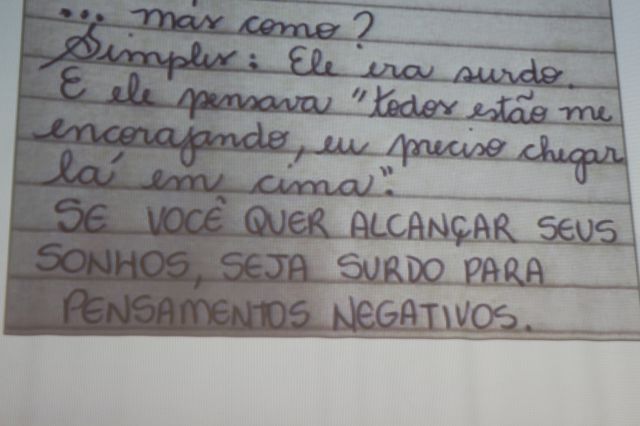 ... mas como?
Simples: Ele era surdo.
E ele pensava "todos estão me
encorajando, eu preciso chegar
lá em cima".
SE VOCÊ QUER ALCANÇAR SEUS
SONHOS, SEJA SURDO PARA
PENSAMENTOS NEGATIVOS.